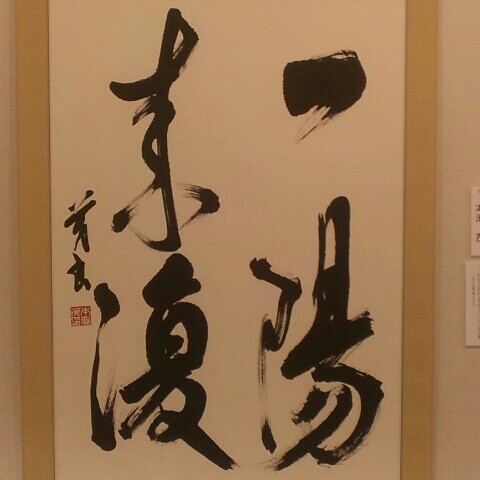 一陽
来復